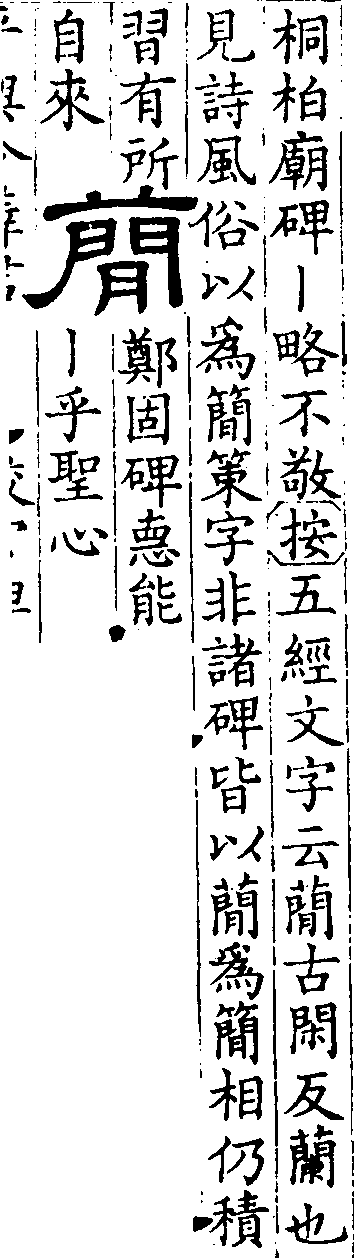 桐柏廟碑丨略不敬按五經文字云蕳古閑反蘭也
見詩風俗以爲簡策字非諸碑皆以蕳爲簡相仍積
習有所
自來
蕳
鄭固碑惪能
丨乎聖心